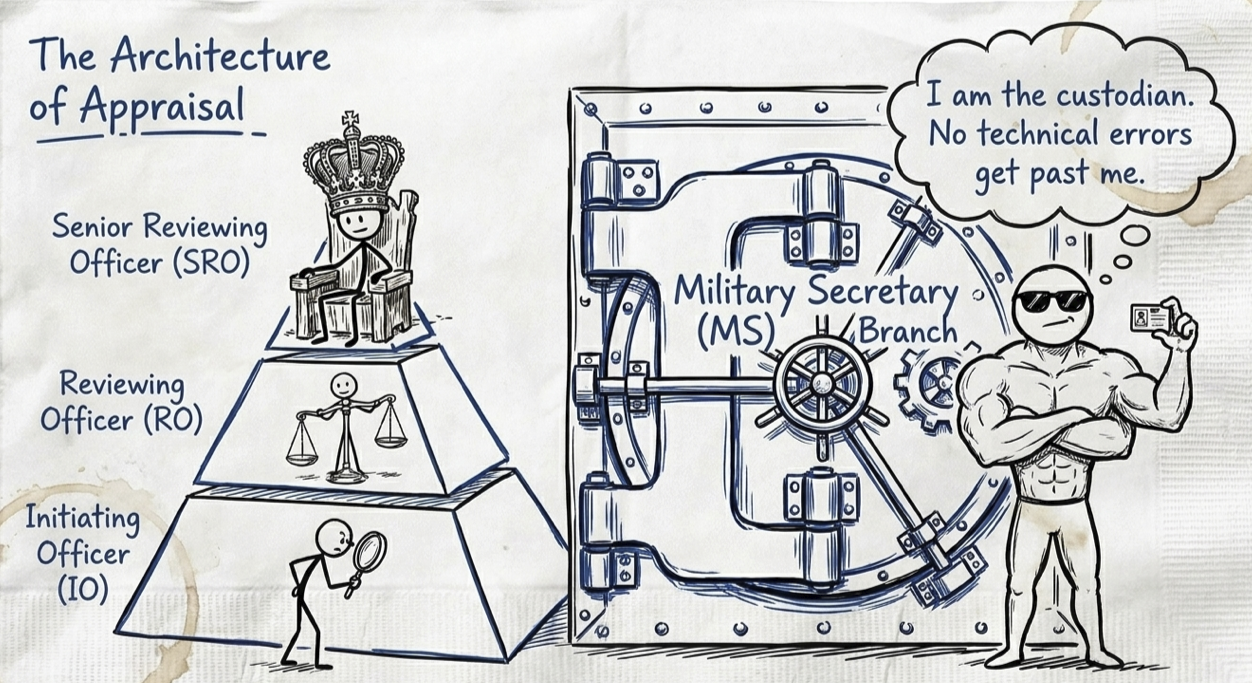 The Architecture
of Appraisal
Senior Reviewing
Officer (SRO)
Reviewing
Officer (RO)
Initiating
Officer
(IO)
Military Secretary
(MS) Branch
I am the custodian.
No technical errors
get past me.